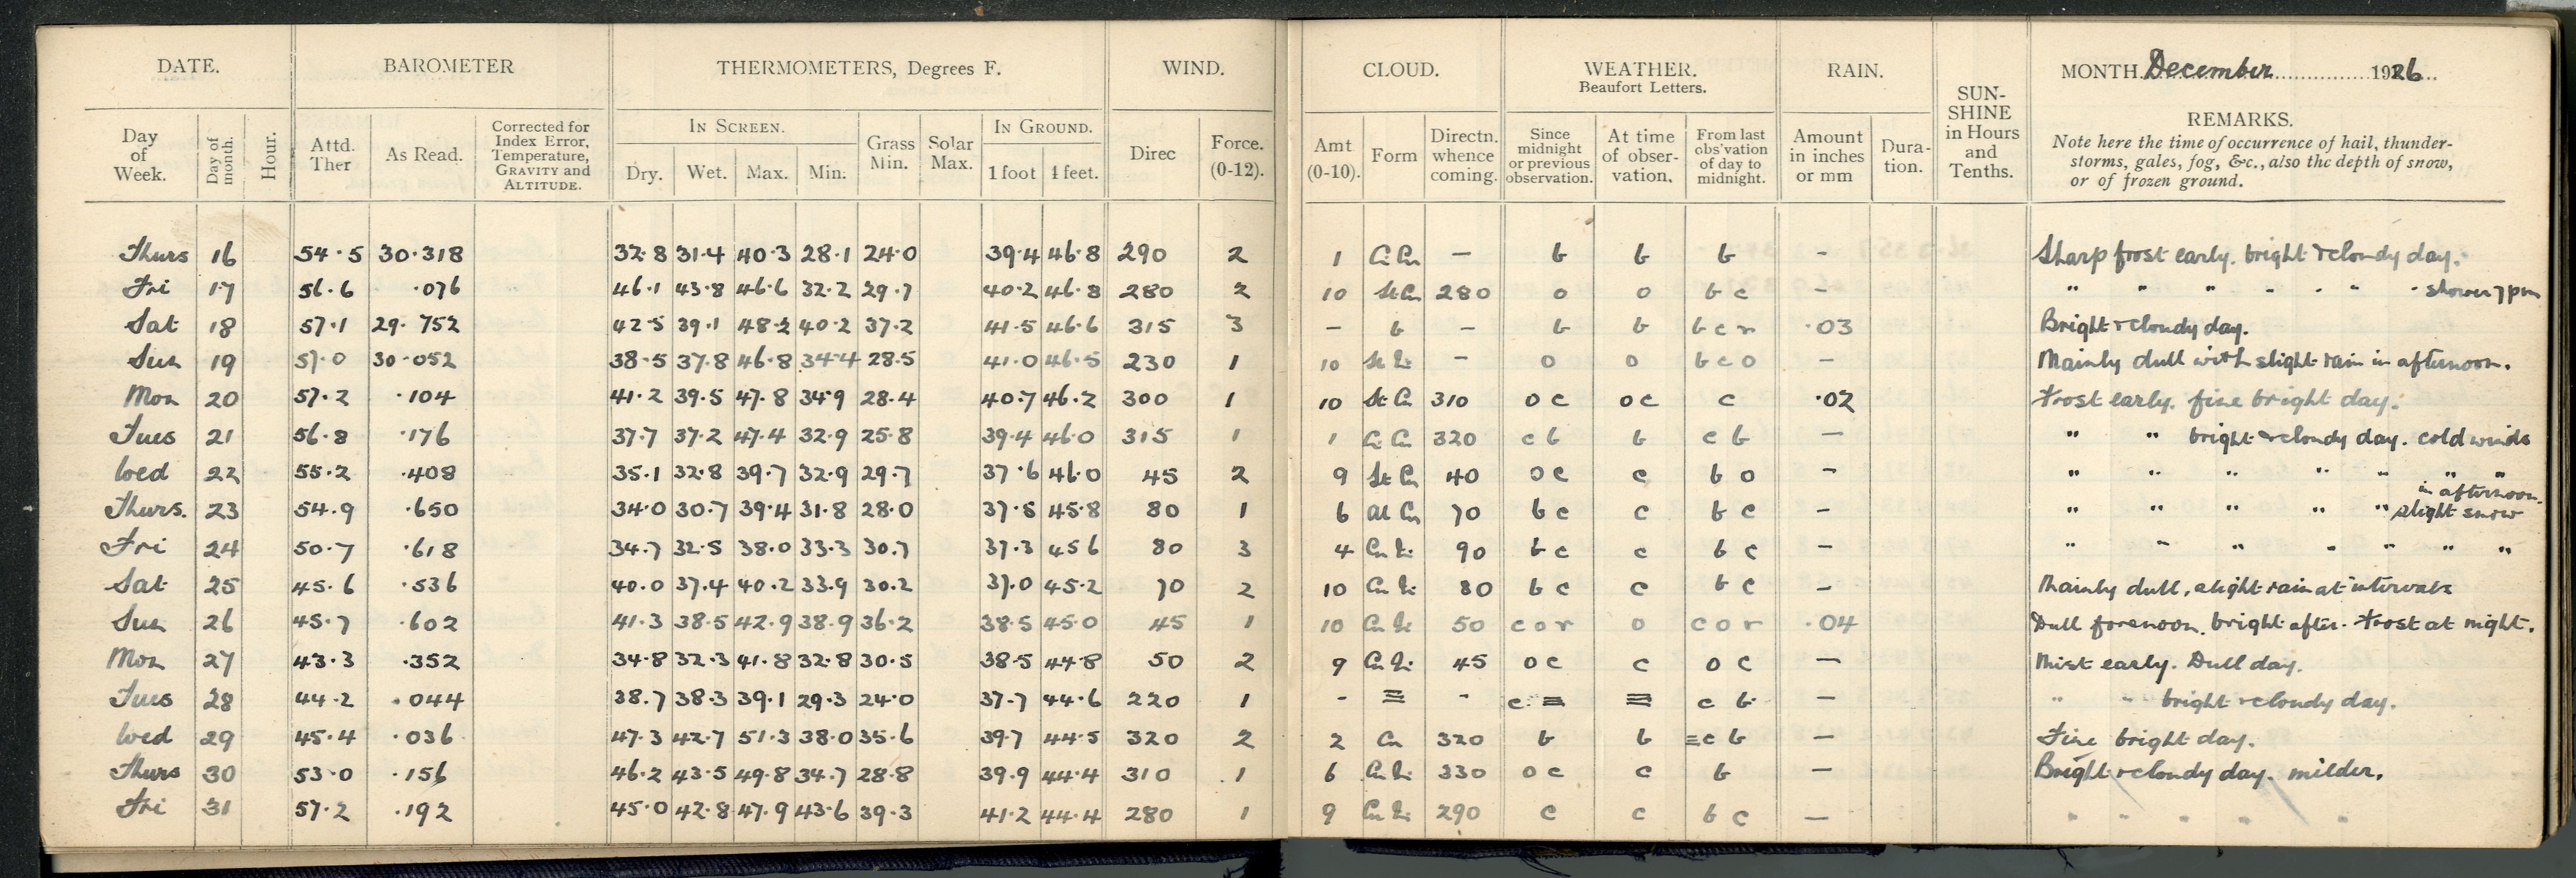 DATE. BAROMETER THERMOMETERS, Degrees F. WIND. CLOUD. WEATHER. Beaufort Letters. RAIN. SUN-SHINE in Hours and Tenths. MONTH. December 1926
Day of Week. Day of month. Hour. Attd. Ther As Read. Corrected for Index Error, Temperature, GRAVITY and ALTITUDE. IN SCREEN. Dry. Wet. Max. Min. Grass Min. Solar Max. IN GROUND. 1 foot 4 feet. Direc Force. (0-12). Amt (0-10). Form Directn. whence coming. Since midnight or previous observation. At time of obser-vation. From last obs'vation of day to midnight. Amount in inches or mm Dura-tion. REMARKS.
Note here the time of occurrence of hail, thunder-
storms, gales, fog, &c., also the depth of snow,
or of frozen ground.
Thurs 16 54.5 30.318 32.8 31.4 40.3 28.1 24.0 39.4 46.8 290 2 1 Ci Cu — b b b - Sharp frost early. bright & cloudy day.
Fri 17 56.6 .076 46.1 43.8 46.6 32.2 29.7 40.2 46.8 280 2 10 St Cu 280 o o b c - " " " " " " " shower 7 pm
Sat 18 57.1 29.752 42.5 39.1 48.2 40.2 37.2 41.5 46.6 315 3 — b — b b b c r .03 Bright & cloudy day.
Sun 19 57.0 30.052 38.5 37.8 46.8 34.4 28.5 41.0 46.5 230 1 10 — o o b c o — Mainly dull with slight rain in afternoon.
Mon 20 57.2 .104 41.2 39.5 47.8 34.9 28.4 40.7 46.2 300 1 10 St Cu 310 o c o c c .02 Frost early. fine bright day.
Tues 21 56.8 .176 37.7 37.2 47.4 32.9 25.8 39.4 46.0 315 1 1 Ci Cu 320 c b b c b — " " bright & cloudy day. cold winds
Wed 22 55.2 .408 35.1 32.8 39.7 32.9 29.7 37.6 46.0 45 2 9 St Cu 40 o c c b o - " " " " " " "
Thurs. 23 54.9 .650 34.0 30.7 39.4 31.8 28.0 37.5 45.8 80 1 6 al Cu 70 b c c b c - " " " " " slight snow in afternoon.
Fri 24 50.7 .618 34.7 32.5 38.0 33.3 30.7 37.3 45 6 80 3 4 90 b c c b c — " " " " " " "
Sat 25 45.6 .536 40.0 37.4 40.2 33.9 30.2 37.0 45.2 70 2 10 80 b c c b c — Mainly dull, slight rain at intervals
Sun 26 45.7 .602 41.3 38.5 42.9 38.9 36.2 38.5 45.0 45 1 10 50 c o r o c o r .04 Dull forenoon. bright after. Frost at night.
Mon 27 43.3 .352 34.8 32.3 41.8 32.8 30.5 38.5 44.8 50 2 9 45 o c c o c — Mist early. Dull day.
Tues 28 44.2 .044 38.7 38.3 39.1 29.3 24.0 37.7 44.6 220 1 - ≡ - c ≡ ≡ c b — " " bright & cloudy day.
Wed 29 45.4 .036 47.3 42.7 51.3 38.0 35.6 39.7 44.5 320 2 2 Cu 320 b b ≡ c b — Fine bright day.
Thurs 30 53.0 .156 46.2 43.5 49.8 34.7 28.8 39.9 44.4 310 1 6 330 o c c b — Bright & cloudy day. milder.
Fri 31 57.2 .192 45.0 42.8 47.9 43.6 39.3 41.2 44.4 280 1 9 290 c c b c — " " " " "